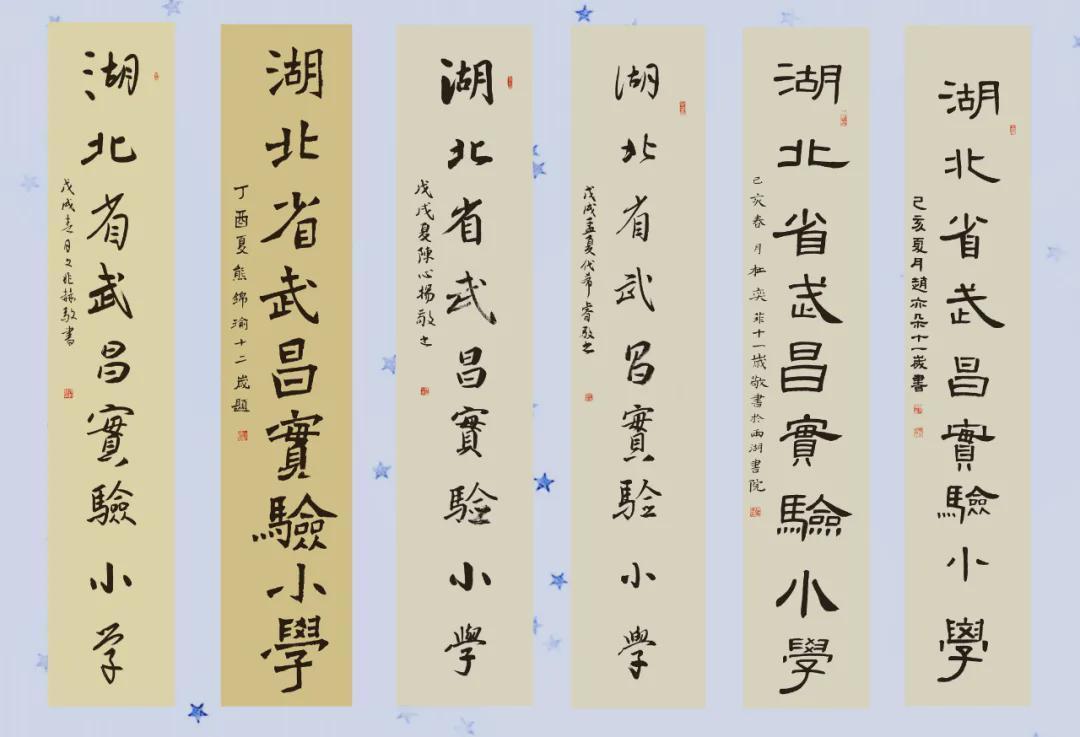 湖北省武昌實驗小学
戊戌春日文兆赫敬書
湖北省武昌實驗小學
丁酉夏熊錦渝十二歲題
湖北省武昌實驗小學
戊戌夏陳心揚敬书
湖北省武昌實驗小學
戊戌孟夏代希睿敬书
湖北省武昌實驗小學
己亥春月杜奕菲十一歲敬書於兩湖書院
湖北省武昌實驗小學
己亥夏月趙亦朵十一歲書